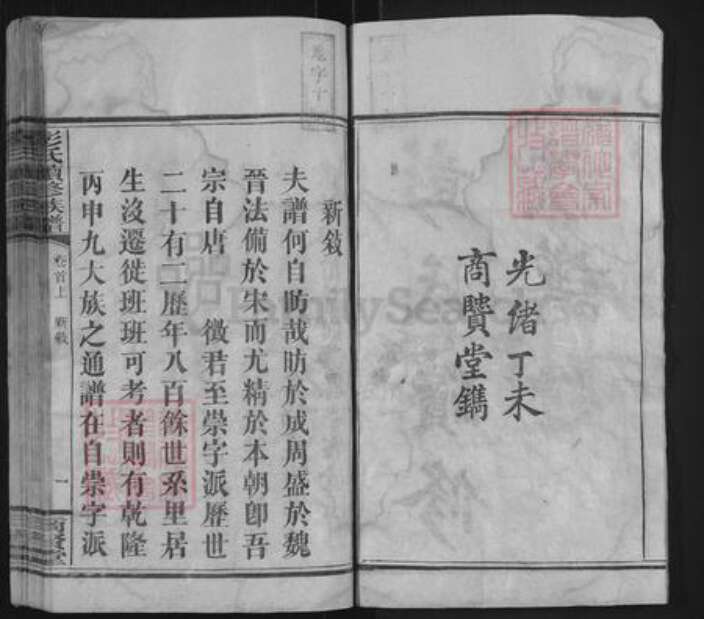 光緒丁未
商賢堂鐫
新敘
夫譜何自昉哉昉於成周盛於魏
晉法備於宋而尤精於本朝卽吾
宗自唐 徵君至崇字派歷世
二十有二歷年八百餘世系里居
生沒遷徙班班可考者則有乾隆
丙申九大族之通譜在自崇字派
彭氏續修族譜
卷首上 新敘
一
商賢堂
FamilySearch